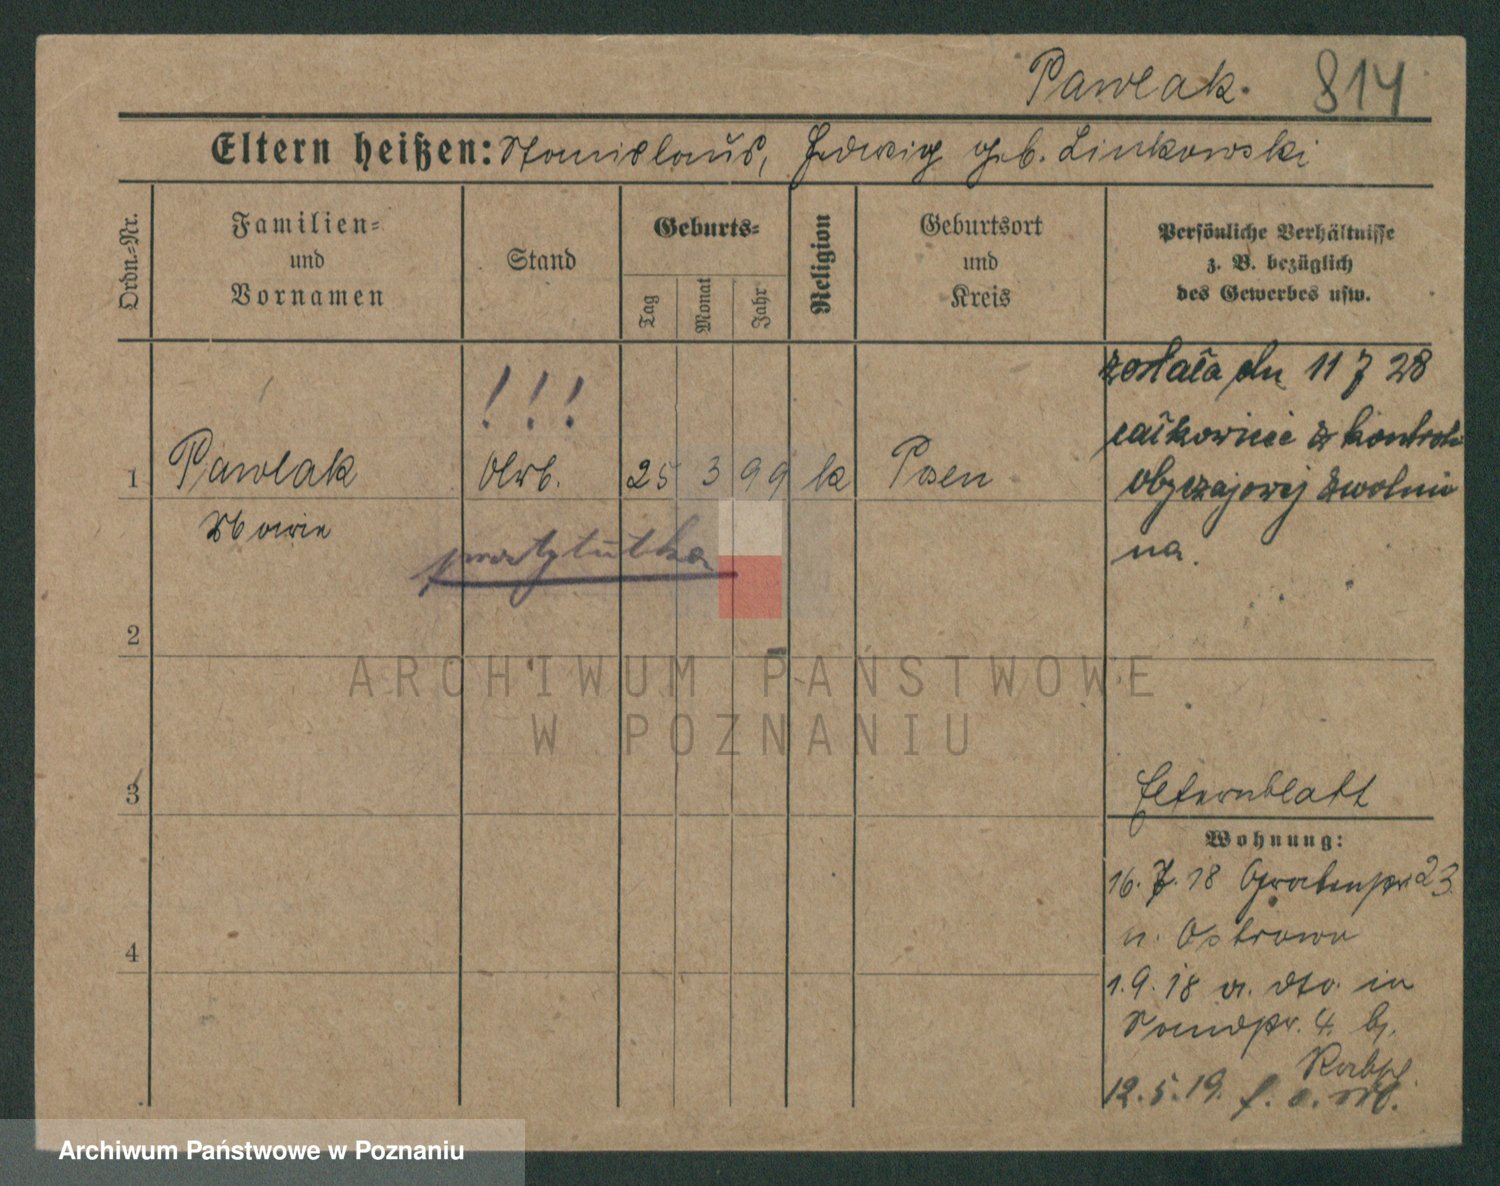 Pawlak. 814
Eltern heißen: Stanislaus, Hedwig geb. Linkowski
Ordn.-Nr.
Familien-
und
Vornamen
Stand
Geburts-
Tag
Monat
Jahr
Religion
Geburtsort
und
Kreis
Persönliche Verhältnisse
z. B. bezüglich
des Gewerbes usw.
!!!
1 Pawlak Arb. 25 3 99 k Posen
prostytutka
została dn 11 7 28
całkowicie z kontroli
obyczajowej zwolnio
na.
2
3
4
Elternblatt
Wohnung:
16. 7. 18 23
n. Ostrowo
1. 9. 18 v. dto. in
4. bj.
12. 5. 19.
ARCHIWUM PAŃSTWOWE
W POZNANIU
Archiwum Państwowe w Poznaniu